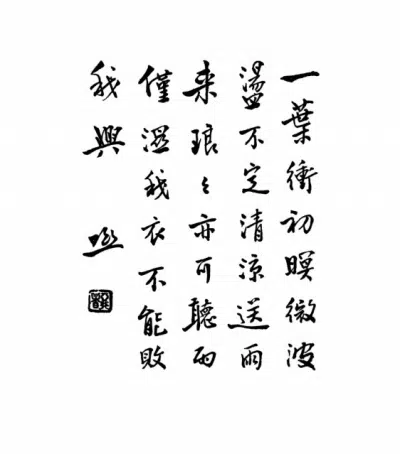 一葉衝初暝微波
盪不定清涼送雨
来琅々亦可聽雨
僅濕我衣不能敗
我興